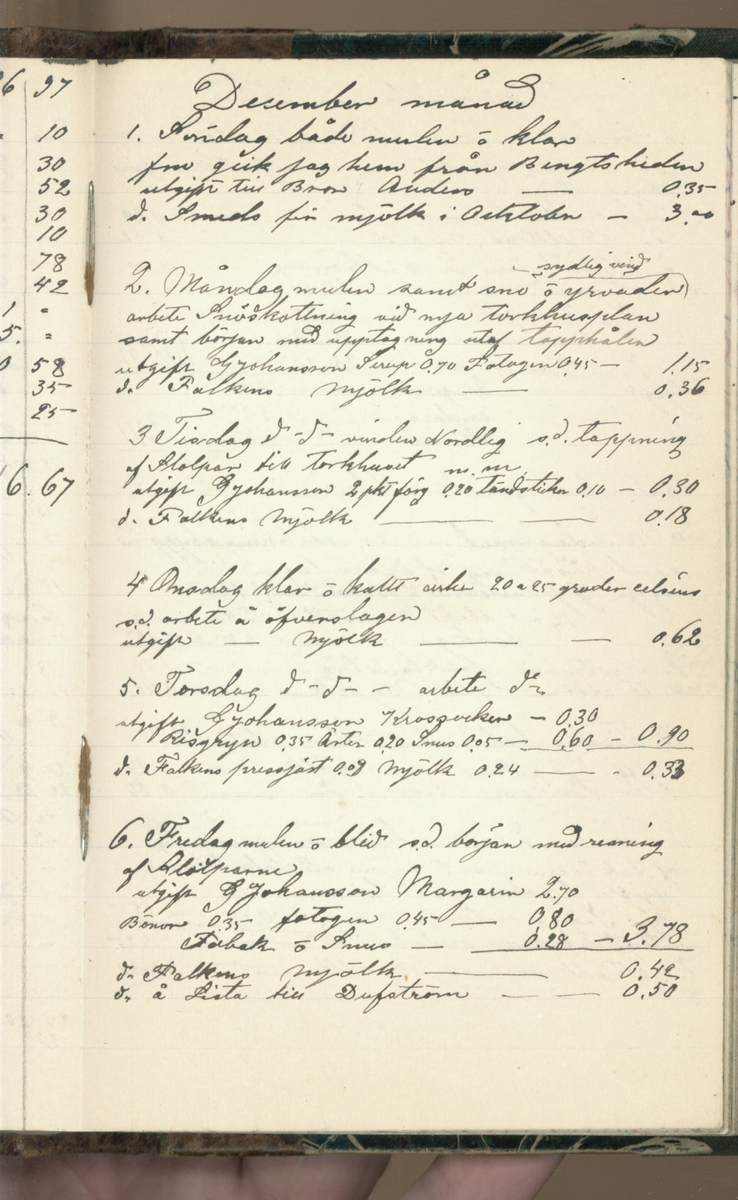 26 97
10
30
52
30
10
78
42
1 "
5. "
0 58
35
25
16.67
Desember månad
1. Söndag både mulen o klar
fm gick jag hem från Bengtsheden
utgift till Bror Anders — 0.35
d. Smeds för mjölk i Oktober — 3.00
sydlig vind
2. Måndag mulen samt snö o yrväder
arbete Snöskottning vid nya torkhusplan
samt början med upptagning utaf tapphålen
utgift G Johansson Sirup 0,70 Fotogen 0,45 — 1.15
d. Falkens Mjölk — 0.36
3 Tisdag d-d- vinden Nordlig s.d. tappning
af Stolpar till torkhuset m.m.
utgift G Johansson 2 pkt färg 0.20 tändstickor 0.10 — 0.30
d. Falkens Mjölk — 0.18
4 Onsdag klar o kallt cirka 20 a 25 grader celsius
s.d. arbete å öfverslagen
utgift — Mjölk — 0.62
5. Torsdag d-d- - arbete do
utgift G Johansson Krossocker — 0.30
Risgryn 0.35 Ärter 0.20 Snus 0.05 — 0.60 — 0.90
d. Falkens pressjäst 0.09 Mjölk 0.24 — 0.33
6. Fredag mulen o blid s.d. början med resning
af Stolparne
utgift G Johansson Margarin 2.70
Bönor 0.35 fotogen 0.45 — 0.80
Tobak o Snus — 0.28 — 3.78
d. Falkens Mjölk — 0.42
d. å Lista till Dufström — 0.50